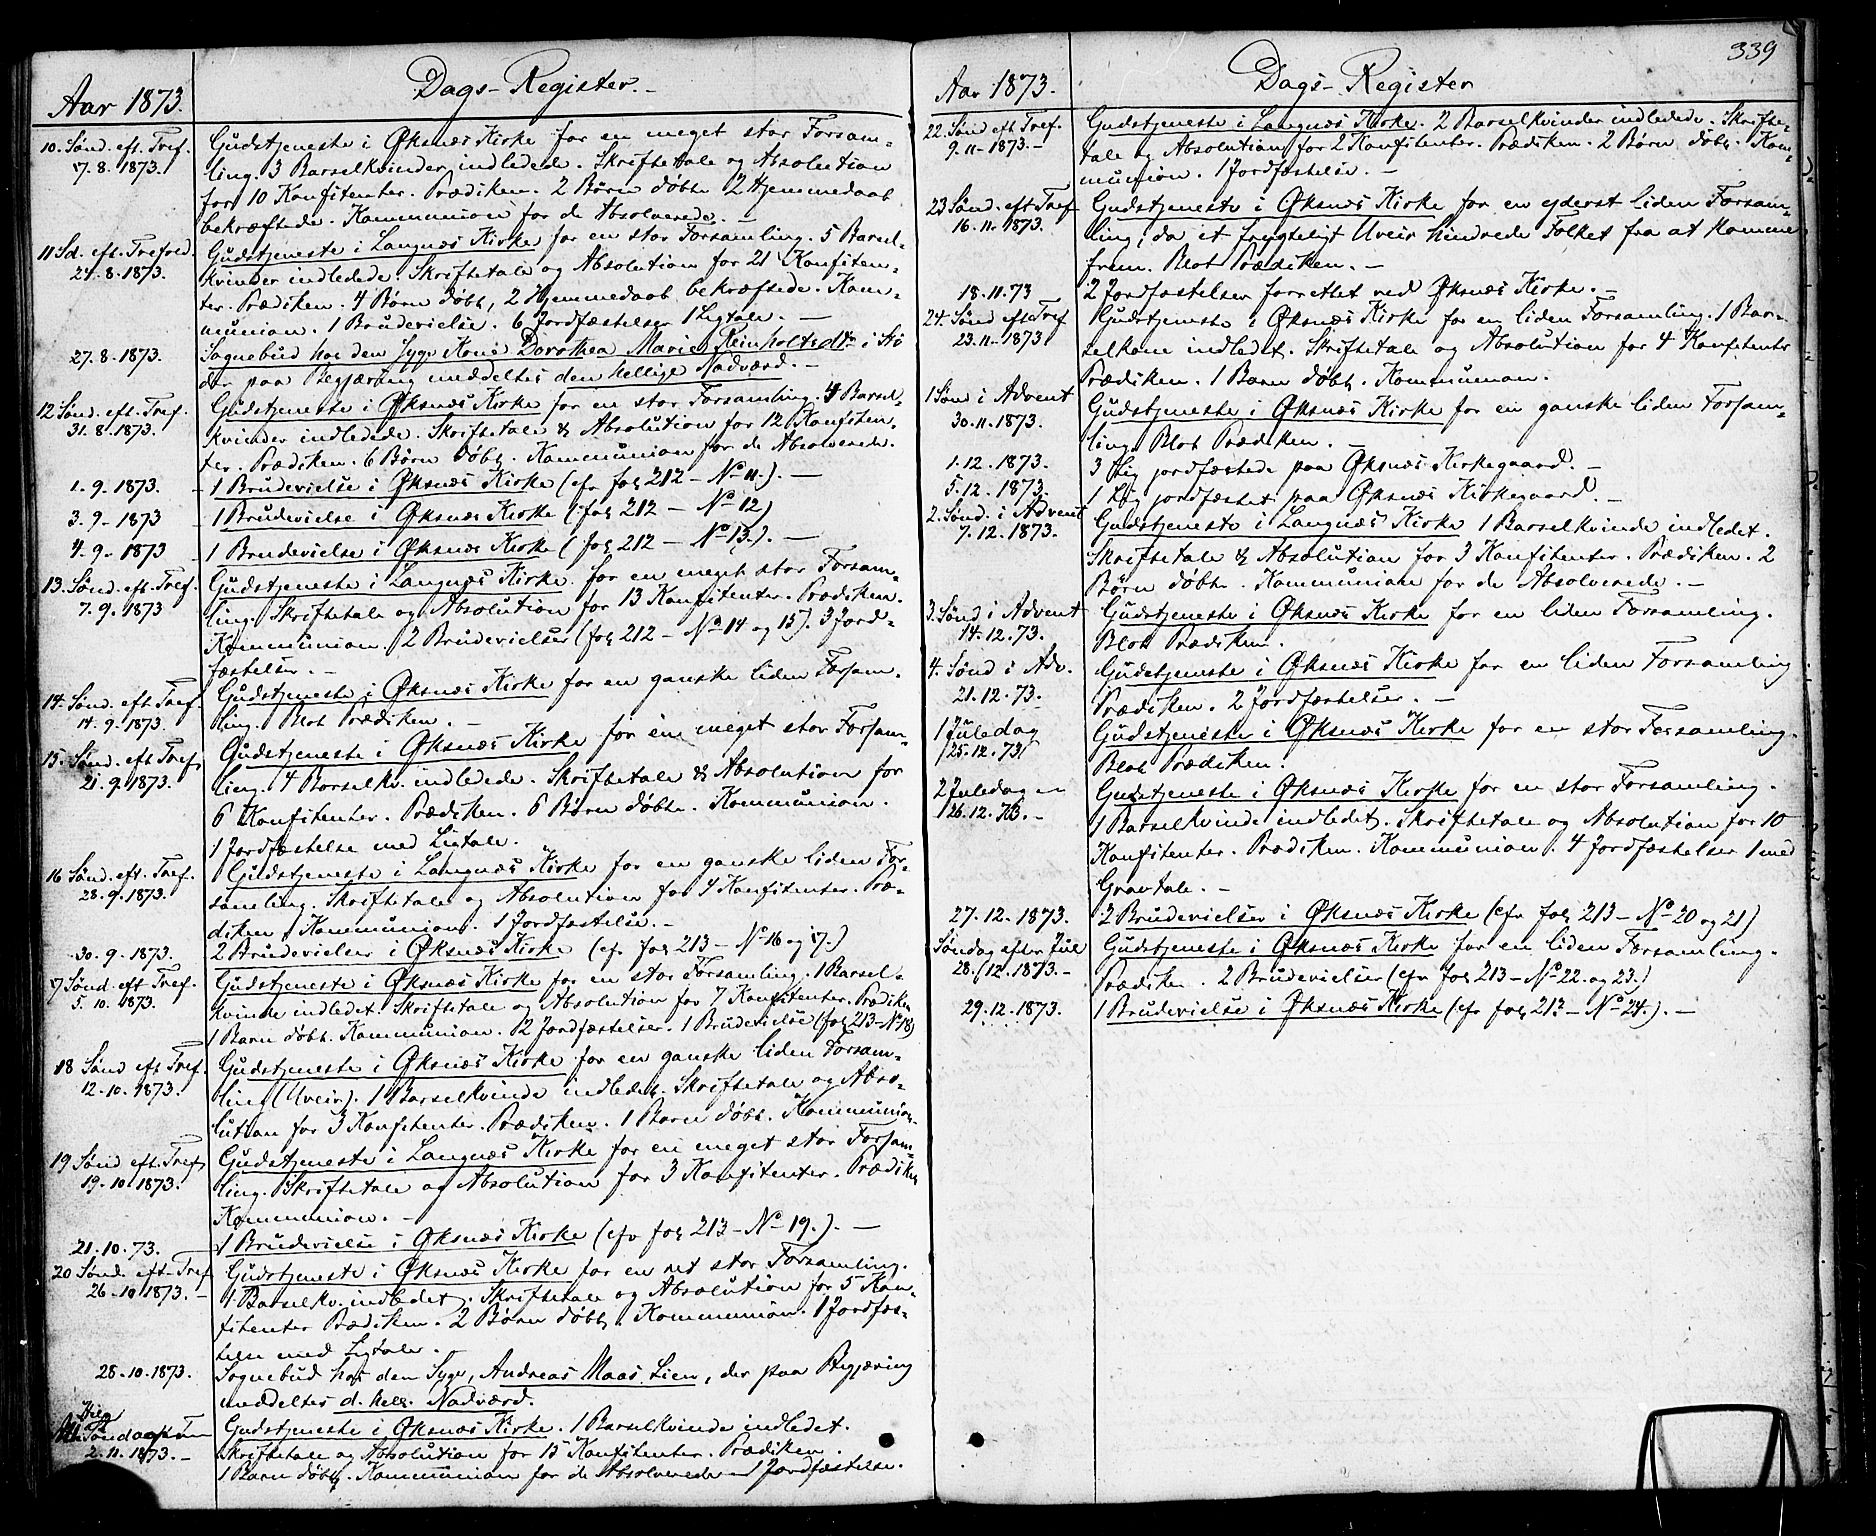 Aar 1873.
Dags-Register.-
10. Sønd. eft. Tref.
17.8.1873.
Gudstjeneste i Øksnæs Kirke for en meget stor Forsam-
ling. 3 Barselkvinder indledede. Skriftetale og Absolution
for 10 Konfitenter. Prædiken. 2 Børn døbte 2 Hjemmedaab
bekræftede. Kommunion for de Absolverede. -
11 Sd. eft. Trefold.
24.8.1873.
Gudstjeneste i Langnæs Kirke for en stor Forsamling. 5 Barsel-
kvinder indledede. Skriftetale og Absolution for 21 Konfiten-
ter. Prædiken. 4 Børn døbt, 2 Hjemmedaab bekræftede. Kom-
munion. 1 Brudevielse. 6 Jordfæstelser 1 Ligtale. -
27.8.1873.
Sognebud hos den syge Kone Dorothea Maria Reinholtsdtr i Stø
der paa Begjæring meddeltes den hellige Nadværd. -
12 Sønd. eft. Tref.
31.8.1873.
Gudstjeneste i Øksnæs Kirke for en stor Forsamling. 4 Barsel-
kvinder indledede. Skriftetale & Absolution for 12 Konfiten-
ter. Prædiken. 6 Børn døbt. Kommunion for de Absolverede.
1.9.1873. - 1 Brudevielse i Øksnæs Kirke (cfr fol 212 - No 11.). -
3.9-1873 - 1 Brudevielse i Øksnæs Kirke (fol 212 - No 12)
4.9-1873 - 1 Brudevielse i Øksnæs Kirke (fol 212 - No 13.). -
13. Sønd. eft. Tref.
7.9.1873
Gudstjeneste i Langnæs Kirke for en meget stor Forsam-
ling. Skriftetale og Absolution for 13 Konfitenter. Prædiken.
Kommunion. 2 Brudevielser (fol 212 - No 14 og 15). 3 Jord-
fæstelser. -
14. Sønd. eft Tref.
14.9.1873.
Gudstjeneste i Øksnæs Kirke for en ganske liden Forsam-
ling. Blot Prædiken. -
15. Sønd. eft Tref.
21.9.1873.
Gudstjeneste i Øksnæs Kirke for en meget stor Forsam-
ling. 4 Barselkv. indledede. Skriftetale & Absolution for
6 Konfitenter. Prædiken. 6 Børn døbte. Kommunion.
1 Jordfæstelse med Ligtale.
16 Sønd. eft. Tref.
28.9.1873.
Gudstjeneste i Langnæs Kirke for en ganske liden For-
samling. Skriftetale og Absolution for 4 Konfitenter. Præ-
diken. Kommunion. 1 Jordfæstelse. -
30.9.1873.
2 Brudevielser i Øksnæs Kirke (cfr fol 213 - No 16 og 17.)
17 Sønd. eft Tref.
5.10.1873.
Gudstjeneste i Øksnæs Kirke for en stor Forsamling. 1 Barsel-
kvinde indledet. Skriftetale og Absolution for 7 Konfitenter. Prædiken
1 Barn døbt. Kommunion. 2 Jordfæstelser. 1 Brudevielse (fol 213 - No 18)
18 Sønd eft Tref.
12.10.1873.
Gudstjeneste i Øksnæs Kirke for en ganske liden Forsam-
ling (Uveir). 1 Barselkvinde indledet. Skriftetale og Abso-
lution for 3 Konfitenter. Prædiken. 1 Barn døbt. Kommunion.
19 Sønd eft. Tref.
19.10.1873.
Gudstjeneste i Langnæs Kirke for en meget stor Forsam-
ling. Skriftetale og Absolution for 3 Konfitenter. Prædiken
Kommunion. -
21.10.73.
1 Brudevielse i Øksnæs Kirke (cfr fol 213 - No 19.). -
20 Sønd. eft. Tref
26.10.1873. -
Gudstjeneste i Øksnæs Kirke for en ret stor Forsamling.
1 Barselkv. indledet. Skriftetale og Absolution for 5 Kon-
fitenter Prædiken. 2 Børn døbt. Kommunion. 1 Jordfæs-
telse med Ligtale.
28.10.1873.
Sognebud hos den Syge, Andreas Maas Lien, der paa Begjæring
meddeltes d. hell. Nadværd.
2.11.1873. -
Gudstjeneste i Øksnæs Kirke. 1 Barselkvinde indledet.
Skriftetale og Absolution for 15 Konfitenter. Prædiken.
1 Barn døbt. Kommunion for de Absolverede - 1 Jordfæstelse.
339
Aar 1873.
Dags-Register
22. Sønd eft Tref.
9.11-1873. -
Gudstjeneste i Langnæs Kirke. 2 Barselkvinder indledede. Skrifte-
tale og Absolution for 2 Konfitenter. Prædiken. 2 Børn døbt. Kom-
munion. 1 Jordfæstelse. -
23 Sønd. eft Tref
16.11.1873.
Gudstjeneste i Øksnæs Kirke for en yderst liden Forsam-
ling, da et frygteligt Uveir hindrede Folket fra at komme
frem. Blot Prædiken. -
18.11.73
2 Jordfæstelser forrettet ved Øksnæs Kirke. -
24. Sønd eft Tref
23.11.1873
Gudstjeneste i Øksnæs Kirke for en liden Forsamling. 1 Bar-
selkone indledet. Skriftetale og Absolution for 4 Konfitenter
Prædiken. 1 Barn døbt. Kommunion.
1 Sønd i Advent
30.11.1873.
Gudstjeneste i Øksnæs Kirke for en ganske liden Forsam-
ling. Blot Prædiken. -
1.12.1873.
3 Lig jordfæstede paa Øksnæs Kirkegaard. -
5.12.1873.
1 Lig jordfæstet paa Øksnæs Kirkegaard. -
2. Sønd. i Advent
7.12.1873.
Gudstjeneste i Langnæs Kirke 1 Barselkvinde indledet.
Skriftetale & Absolution for 3 Konfitenter. Prædiken. 2
Børn døbte. Kommunion for de Absolverede. -
3. Sønd i Advent
14.12.73.
Gudstjeneste i Øksnæs Kirke for en liden Forsamling.
Blot Prædiken.
4. Sønd i Adv.
21.12.73.
Gudstjeneste i Øksnæs Kirke for en liden Forsamling
Prædiken. 2 Jordfæstelser. -
1 Juledag
25.12.73.
Gudstjeneste i Øksnæs Kirke for en stor Forsamling.
Blot Prædiken.
2 Juledag
26.12.73. -
Gudstjeneste i Øksnæs Kirke for en stor Forsamling.
1 Barselkvinde indledet. Skriftetale og Absolution for 10
Konfitenter. Prædiken. Kommunion. 4 Jordfæstelser 1 med
Gravtale. -
27.12.1873.
2 Brudevielser i Øksnæs Kirke (cfr fol 213 - No 20 og 21)
Søndag efter Jul
28.12.1873. -
Gudstjeneste i Øksnæs Kirke for en liden Forsamling.
Prædiken. 2 Brudevielser (cfr fol 213 - No 22. og 23.)
29.12.1873.
1 Brudevielse i Øksnæs Kirke (cfr fol 213 - No 24.). -